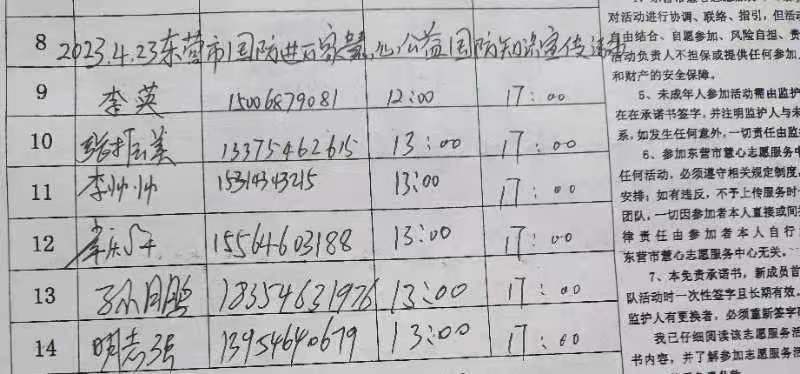 8 2023.4.23东营市国防进万家暨 公益国防知识宣传
9 李英 15006879081 12:00 17:00
10 13375462615 13:00 17:00
11 李帅帅 15314343215 13:00
12 15564603188 13:00 17:00
13 18354631976 13:00 17:00
14 明志强 13954640679 13:00 17:00
对活动进行协调、联络、指引,但活动
自由结合、自愿参加、风险自担、责
活动负责人不担保或提供任何参加人
和财产的安全保障。
5、未成年人参加活动需由监护
在在承诺书签字,并注明监护人与未
系,如发生任何意外,一切责任由监
6、参加东营市慧心志愿服务中
任何活动,必须遵守相关规定制度,
安排;如有违反,不予上传服务时
团队,一切因参加者本人直接或间
律责任由参加者本人自行
东营市慧心志愿服务中心无关。
7、本免责承诺书,新成员首
队活动时一次性签字且长期有效,
监护人有更换者,必须重新签字
我已仔细阅读该志愿服务活
书内容,并了解参加志愿服务活